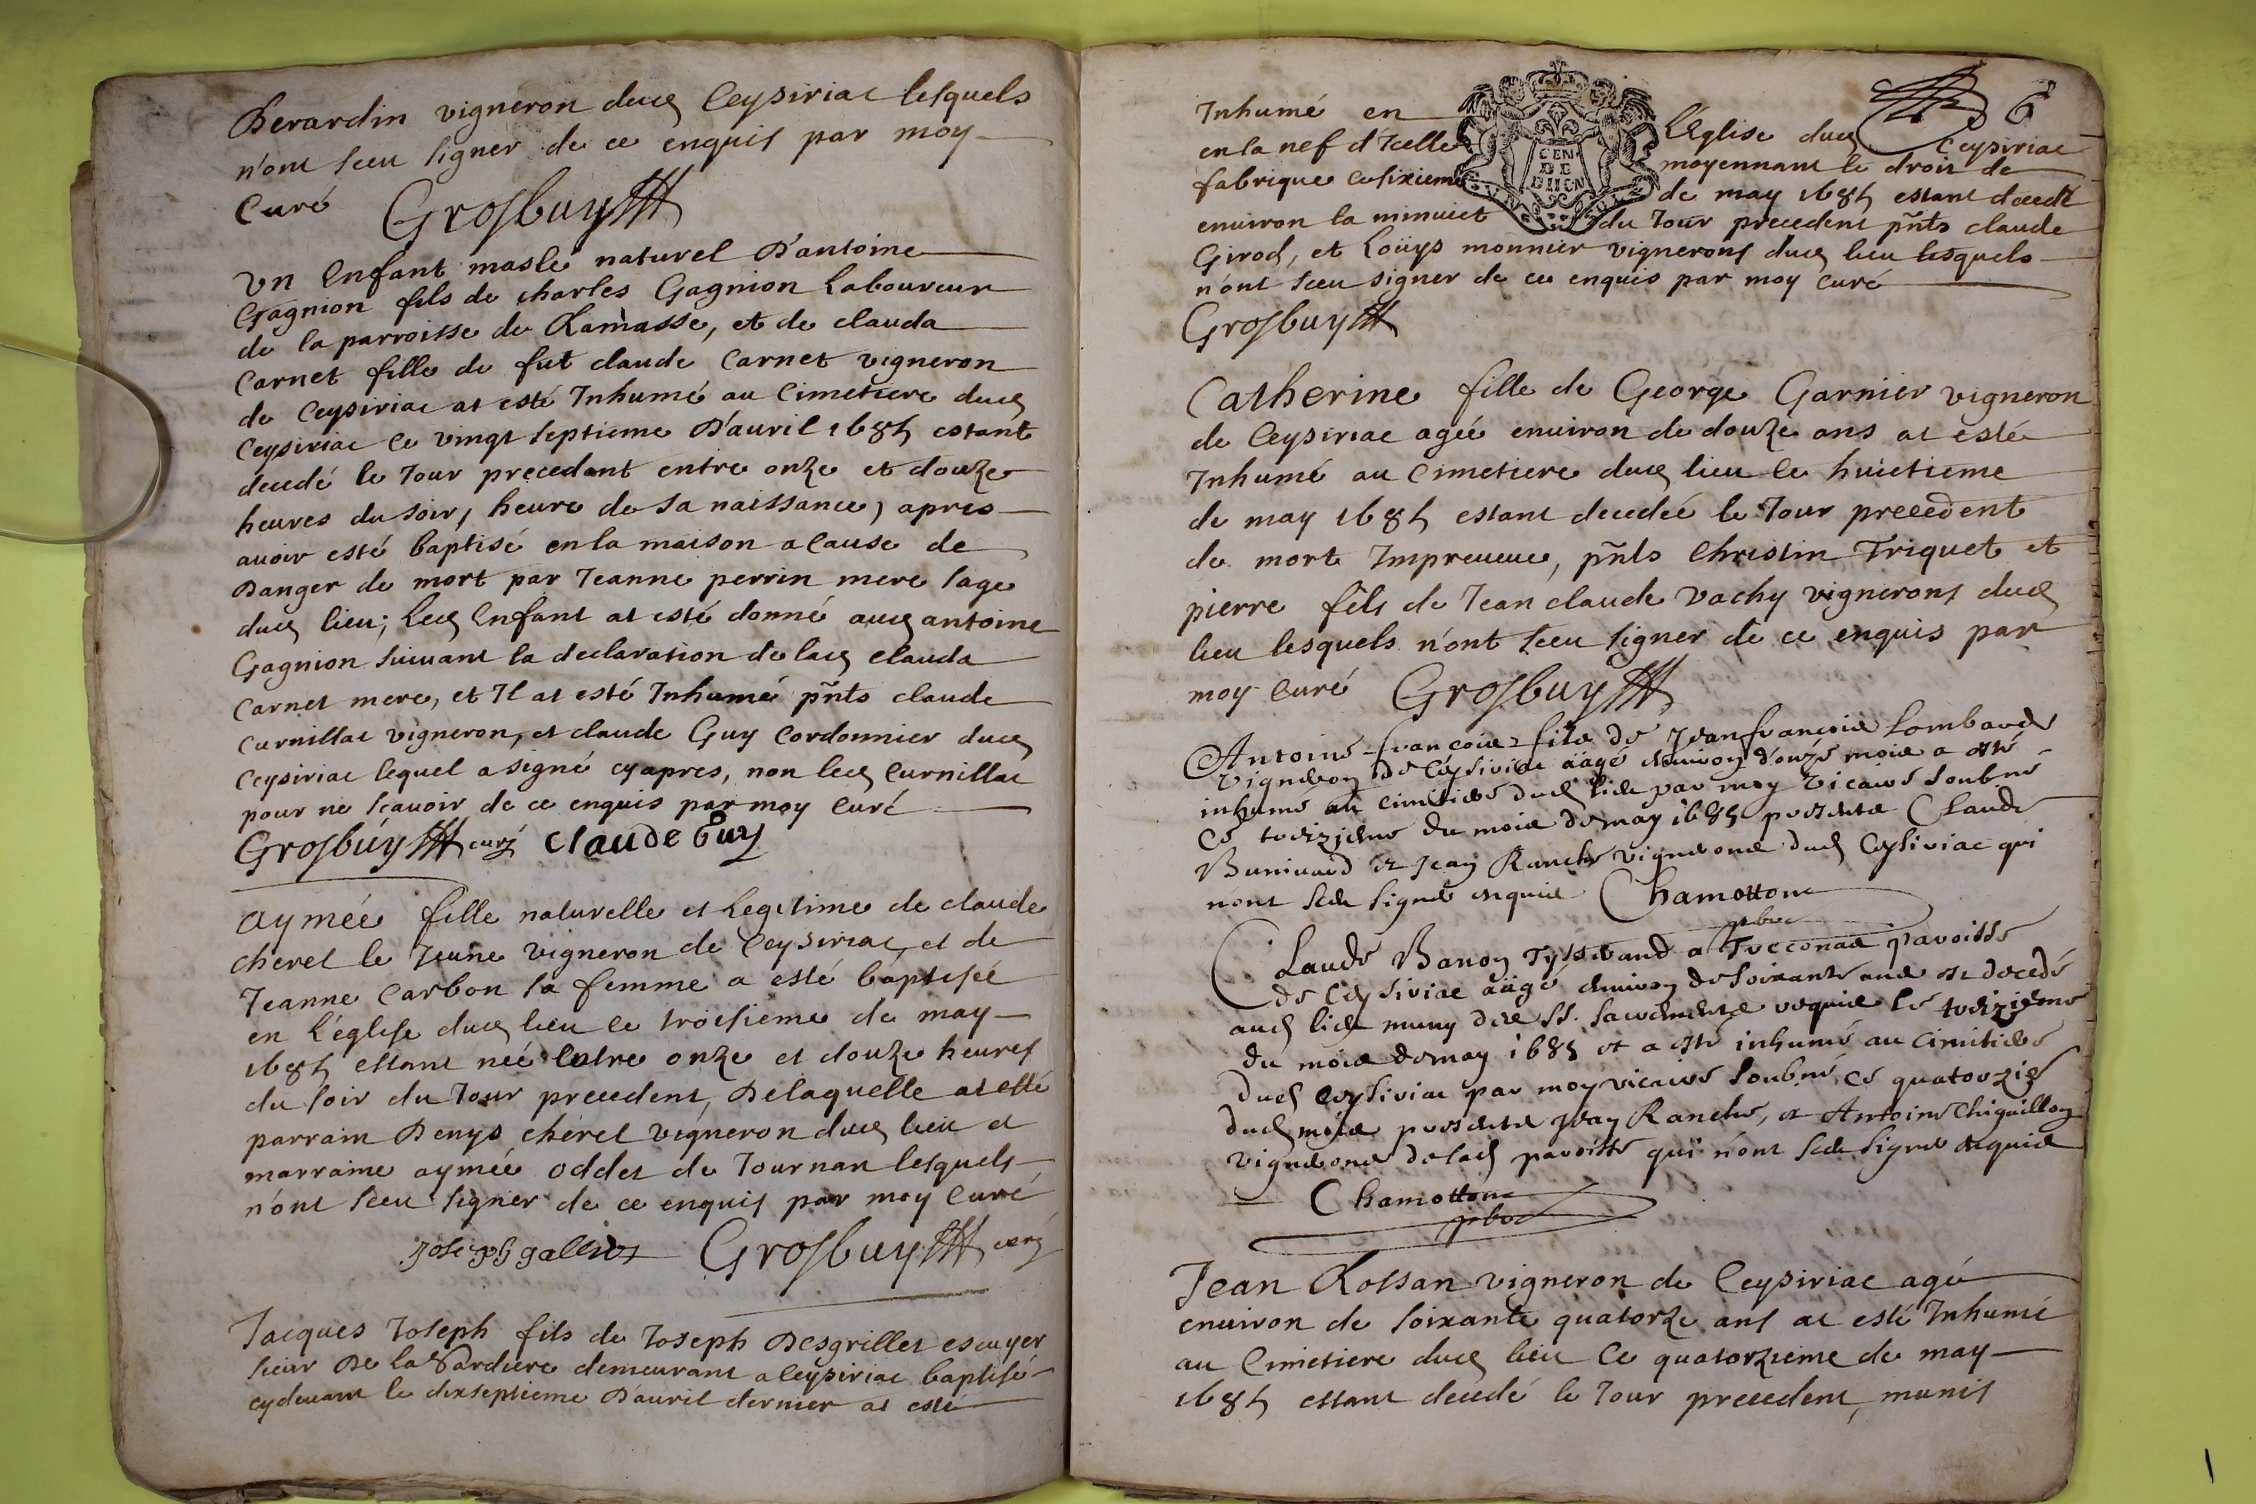 Berardin vigneron dud Ceysiriac lesquels
n'ont sceu signer de ce enquis par moy
Curé Grosbuy
Un Enfant masle naturel d'antoine
Gagnion fils de charles Gagnion Laboureur
de la parroisse de Ramasse, et de clauda
Carnet fille de fut claude Carnet vigneron
de Ceysiriac at esté Inhumé au Cimetiere dud
Ceysiriac le vingt septieme d'avril 1685 estant
decedé le Jour precedant entre onze et douze
heures du soir, heure de sa naissance, apres
avoir esté baptisé en la maison a cause de
danger de mort par Jeanne perrin mere sage
dud lieu; Led Enfant at esté donné aud antoine
Gagnion suivant la declaration de lad clauda
Carnet mere, et Il at esté Inhumé pnts claude
Curnillac vigneron, et claude Guy Cordonnier dud
Ceysiriac lequel a signé cy apres, non led Curnillac
pour ne scavoir de ce enquis par moy Curé
Grosbuy curé claude Guy
Aymée fille naturelle et Legitime de claude
cheret le Jeune vigneron de Ceysiriac, et de
Jeanne Carbon sa femme a esté baptisée
en l'églse dud lieu le troisieme de may
1685 estant née entre onze et douze heures
du soir du Jour precedent, De laquelle at esté
parrain Denys cheret vigneron dud lieu et
marraine aymée oddet de Journan lesquels
n'ont sceu signer de ce enquis par moy Curé
Joseph Grosbuy curé
Jacques Joseph fils de Joseph Desgrillet escuyer
sieur De la demeurant a Ceysiriac baptisé
cydevant le dixseptieme d'avril dernier at esté
6
Inhumé en L'Eglise dud Ceysiriac
en la nef d'Icelle moyennant le droit de
fabrique le sixieme de may 1685 estant decedé
environ la minuict du Jour precedent pnts claude
Girod, et Loüys monnier vignerons dud lieu lesquels
n'ont sceu signer de ce enquis par moy curé
GEN DE DIION
Grosbuy
Catherine fille de George Garnier vigneron
de Ceysiriac agée environ de douze ans at esté
Inhumé au Cimetiere dud lieu le huictieme
de may 1685 estant decedeé le Jour precedent
de mort Impreveue, pnts Christin Triquet et
pierre fils de Jean claude Vachy vignerons dud
lieu lesquels n'ont sceu signer de ce enquis par
moy Curé Grosbuy
Antoine francois fils de Jean francois Lombard
vigneron de Ceysiriac aagé environ d'ouze mois a esté
inhumé au cimitiere dud lieu par moy vicaire soubné
ce treizieme du mois de may 1685 presents Claude
Bunivard et Jean Ranche vignerons dud Ceysiriac qui
n'ont sceu signer enquis Chamotton
pbre
Claude Baron Tysserand a Tocconas paroisse
de Ceysiriac aagé environ de soixante ans est decedé
aud lieu muny des SS. sacrements requis le treizieme
du mois de may 1685 et a esté inhumé au cimitiere
dud Ceysiriac par moy vicaire soubné, ce quatorzie
dud mois presents Jean Ranche, et Antoine Chiquillon
vignerons de lad paroisse qui n'ont sceu signer enquis
Chamotton
pbre
Jean Rossan vigneron de Ceysiriac agé
environ de soixante quatorze ans at esté Inhumé
au Cimetiere dud lieu le quatorzieme de may
1685 estant decedé le Jour precedent, munis